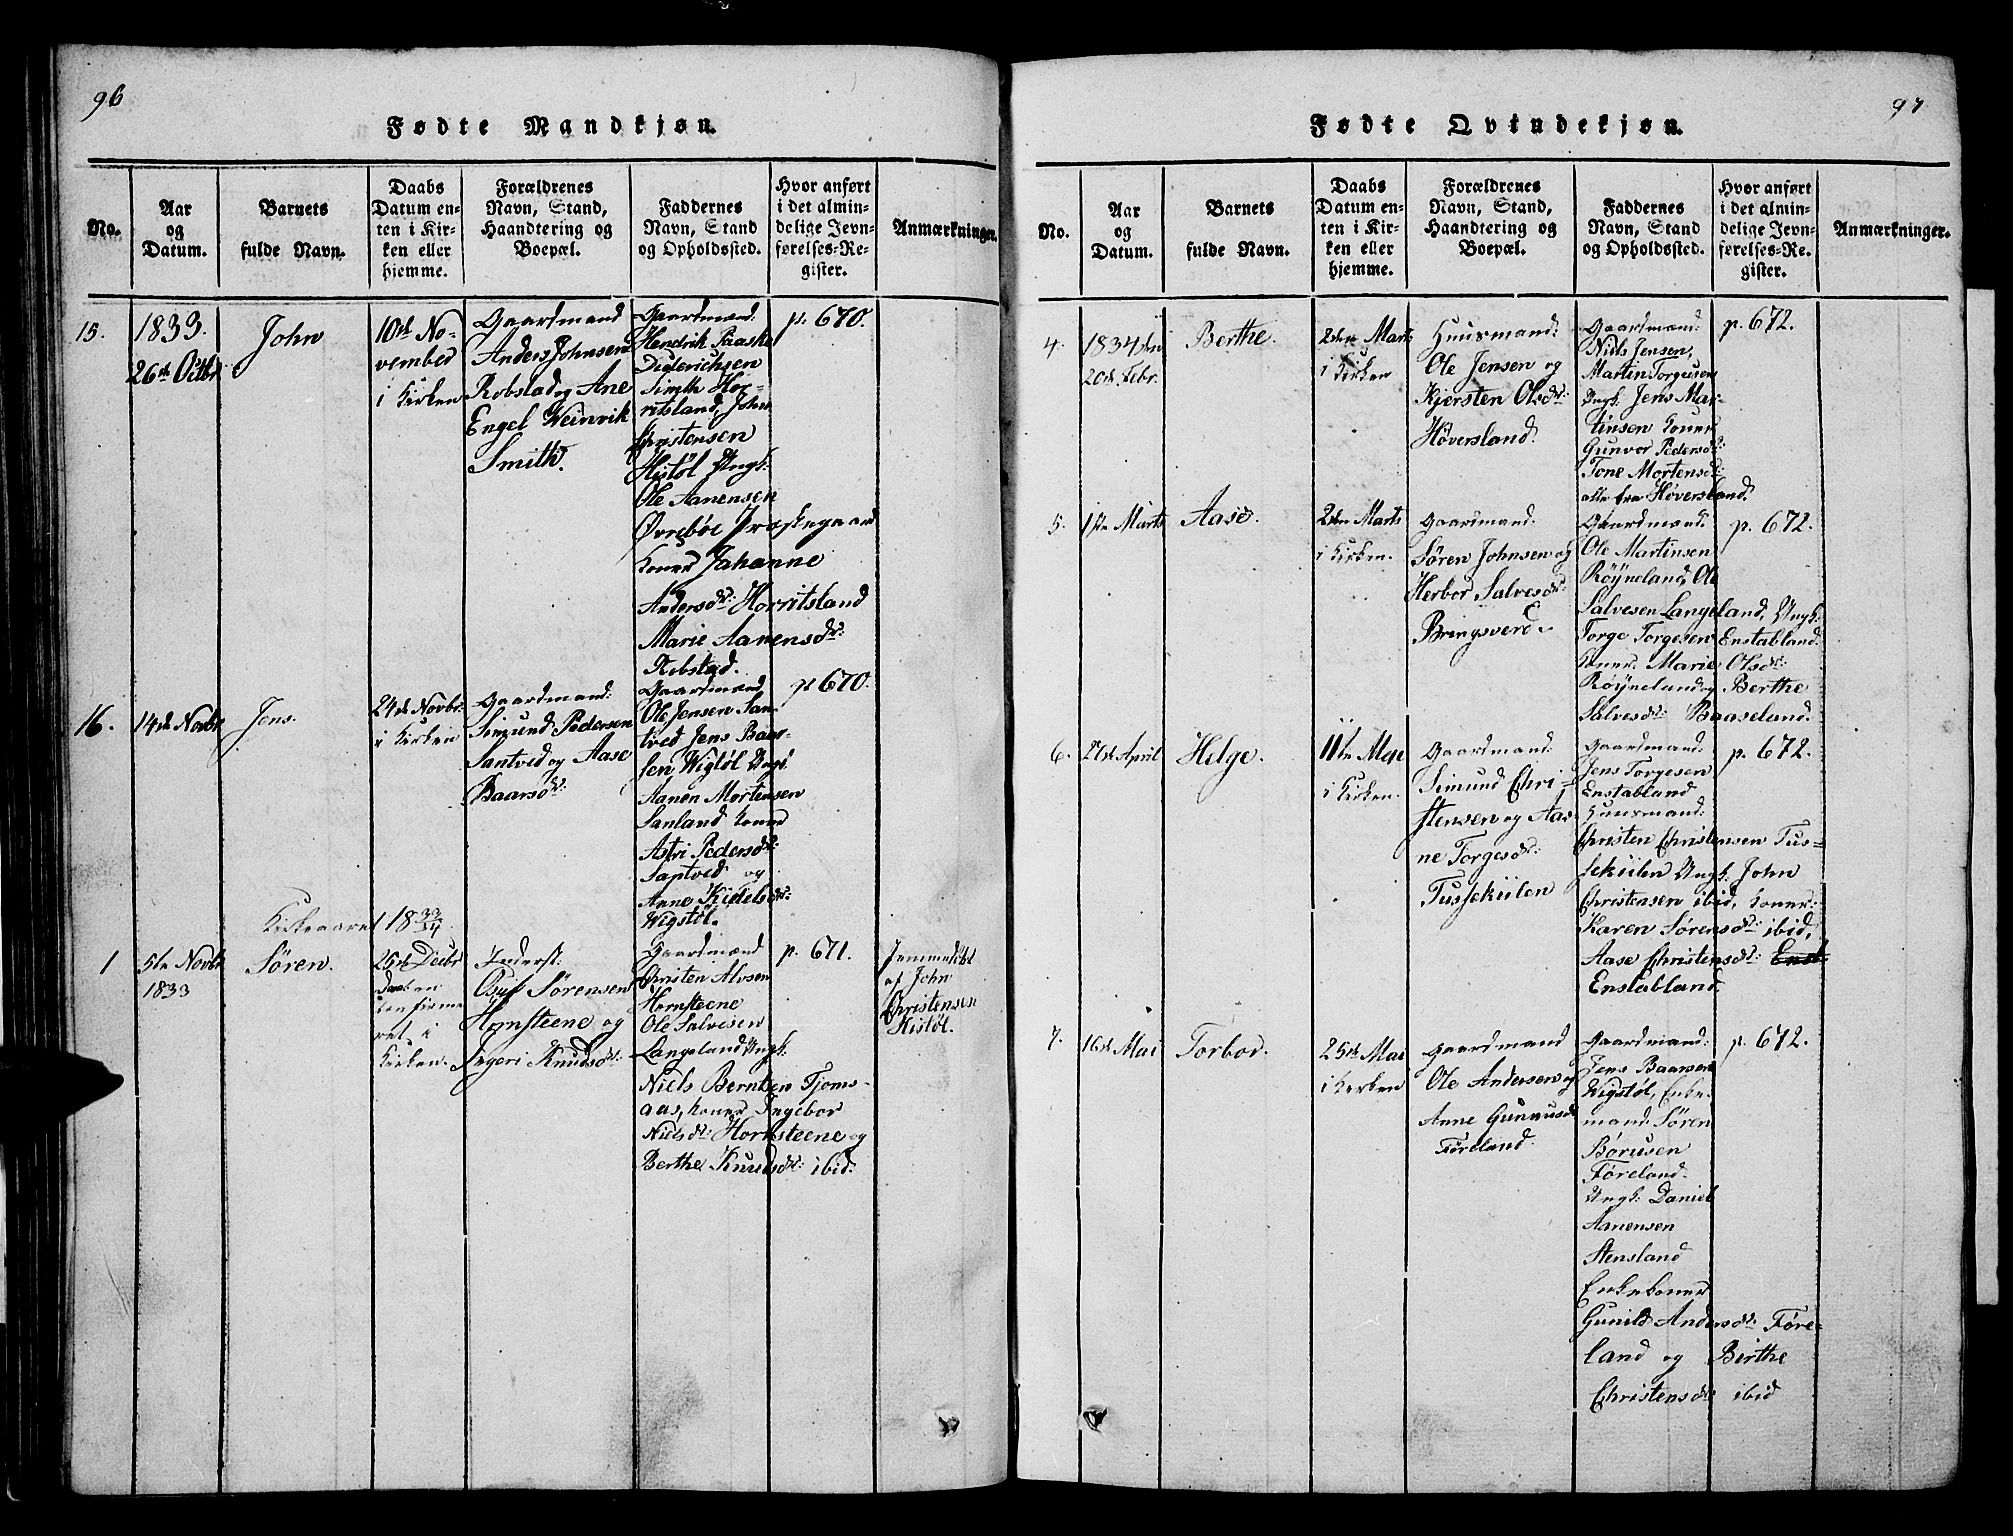 96
Fødte Mandkjøn.
No.
Aar
og
Datum.
Barnets
fulde Navn.
Daabs
Datum en-
ten i Kir-
ken eller
hjemme.
Forældrenes
Navn, Stand,
Haandtering og
Boepæl.
Faddernes
Navn, Stand
og Opholdssted.
Hvor anført
i det almin-
delige Jevn-
førelses-Re-
gister.
Anmærkninger.
15.
1833.
26de Octbr
John
10de No-
vember
i Kirken
Gaardmand
Anders Johnsen
Robstad og Ane
Engel Weinvik
Smith.
Gaardmænd:
Hendrik Paaske
Diderichsen
Smith Hor-
ritsland, John
Christensen
Histøl Ungk:
Ole Aanensen
Øvrebøe Præstegaard
Koner Johanne
Andersdr: Horritsland
Marie Aanensdr:
Robstad.
p. 670.
16.
14de Novbr
Jens.
24de Novbr:
i Kirken
Gaardmand:
Simund Pedersen
Santved og Aase
Baarsdr:
Gaardmænd
Ole Jensen San-
tved Jens Baar-
sen Wigstøl Ungk:
Aanen Mortensen
Sanland Koner
Astri Pedersdr:
Santved og
Anne Kidelsdr:
Wigstøl.
p 670.
Kirkeaaret 1833/34
1
5te Novbr
1833
Søren.
26de Decbr
Daaben
confirme
ret i
Kirken.
Inderst:
Osuf Sørensen
Hornsteene og
Ingeri Knudsdr:
Gaardmænd
Christen Alvsen
Hornsteene
Ole Salvesen
Langeland Ungk:
Niels Berntsen Tjoms-
aas, Koner Ingebor
Nielsdr: Hornsteene og
Berthe Knudsdr: ibid.
p. 671.
af John
Christensen
Histøl.
97
Fødte Qvindekjøn.
No.
Aar
og
Datum.
Barnets
fulde Navn.
Daabs
Datum en-
ten i Kir-
ken eller
hjemme.
Forældrenes
Navn, Stand,
Haandtering og
Boepæl.
Faddernes
Navn, Stand
og Opholdssted.
Hvor anført
i det almin-
delige Jevn-
førelses-Re-
gister.
Anmærkninger.
4.
1834 den
20de Febr.
Berthe.
2den Marts
i Kirken
Huusmand:
Ole Jensen og
Kjersten Olsdr:
Høversland.
Gaardmænd:
Niels Jensen,
Martin Torgusen
Ungk. Jens Mar-
tinsen Koner
Gunvor Pedersdr:
Tone Mortensdr:
alle fra Høversland.
p. 672.
5.
1ste Marts
Aase.
2den Marts
i Kirken.
Gaardmand.
Søren Johnsen og
Herbor Salvesdr:
Bringsverd.
Gaardmænd:
Ole Martinsen
Røyneland, Ole
Salvesen Langeland, Ungk:
Torge Torgesen Enstabland.
Koner. Marie Olsdr:
Røyneland og Berthe
Salvesdr: Baaseland.
p. 672.
6.
27de April
Helge.
11te Mai
i Kirken.
Gaardmand:
Simund Chri-
stensen og Aas-
ne Torgesdr:
Tussekiilen
Gaardmand:
Jens Torgesen
Enstabland
Huusmand:
Christen Christensen Tus-
sekiilen Ungk. John
Christensen ibid, Koner:
Karen Sørensdr: ibid,
Aase Christensdr: Enst-
Enstabland.
p. 672.
7.
16de Mai
Torbor.
25de Mai
i Kirken
Gaardmand
Ole Andersen og
Anne Gunnusdr
Føreland.
Gaardmand:
Jens Baarsen
Wigstøl, Enke-
mand Søren
Børusen
Føreland.
Ungk: Daniel
Aanensen
Stensland
Enkekoner
Gunild Andersdr: Føre-
land og Birthe
Christensdr ibid
p. 672.